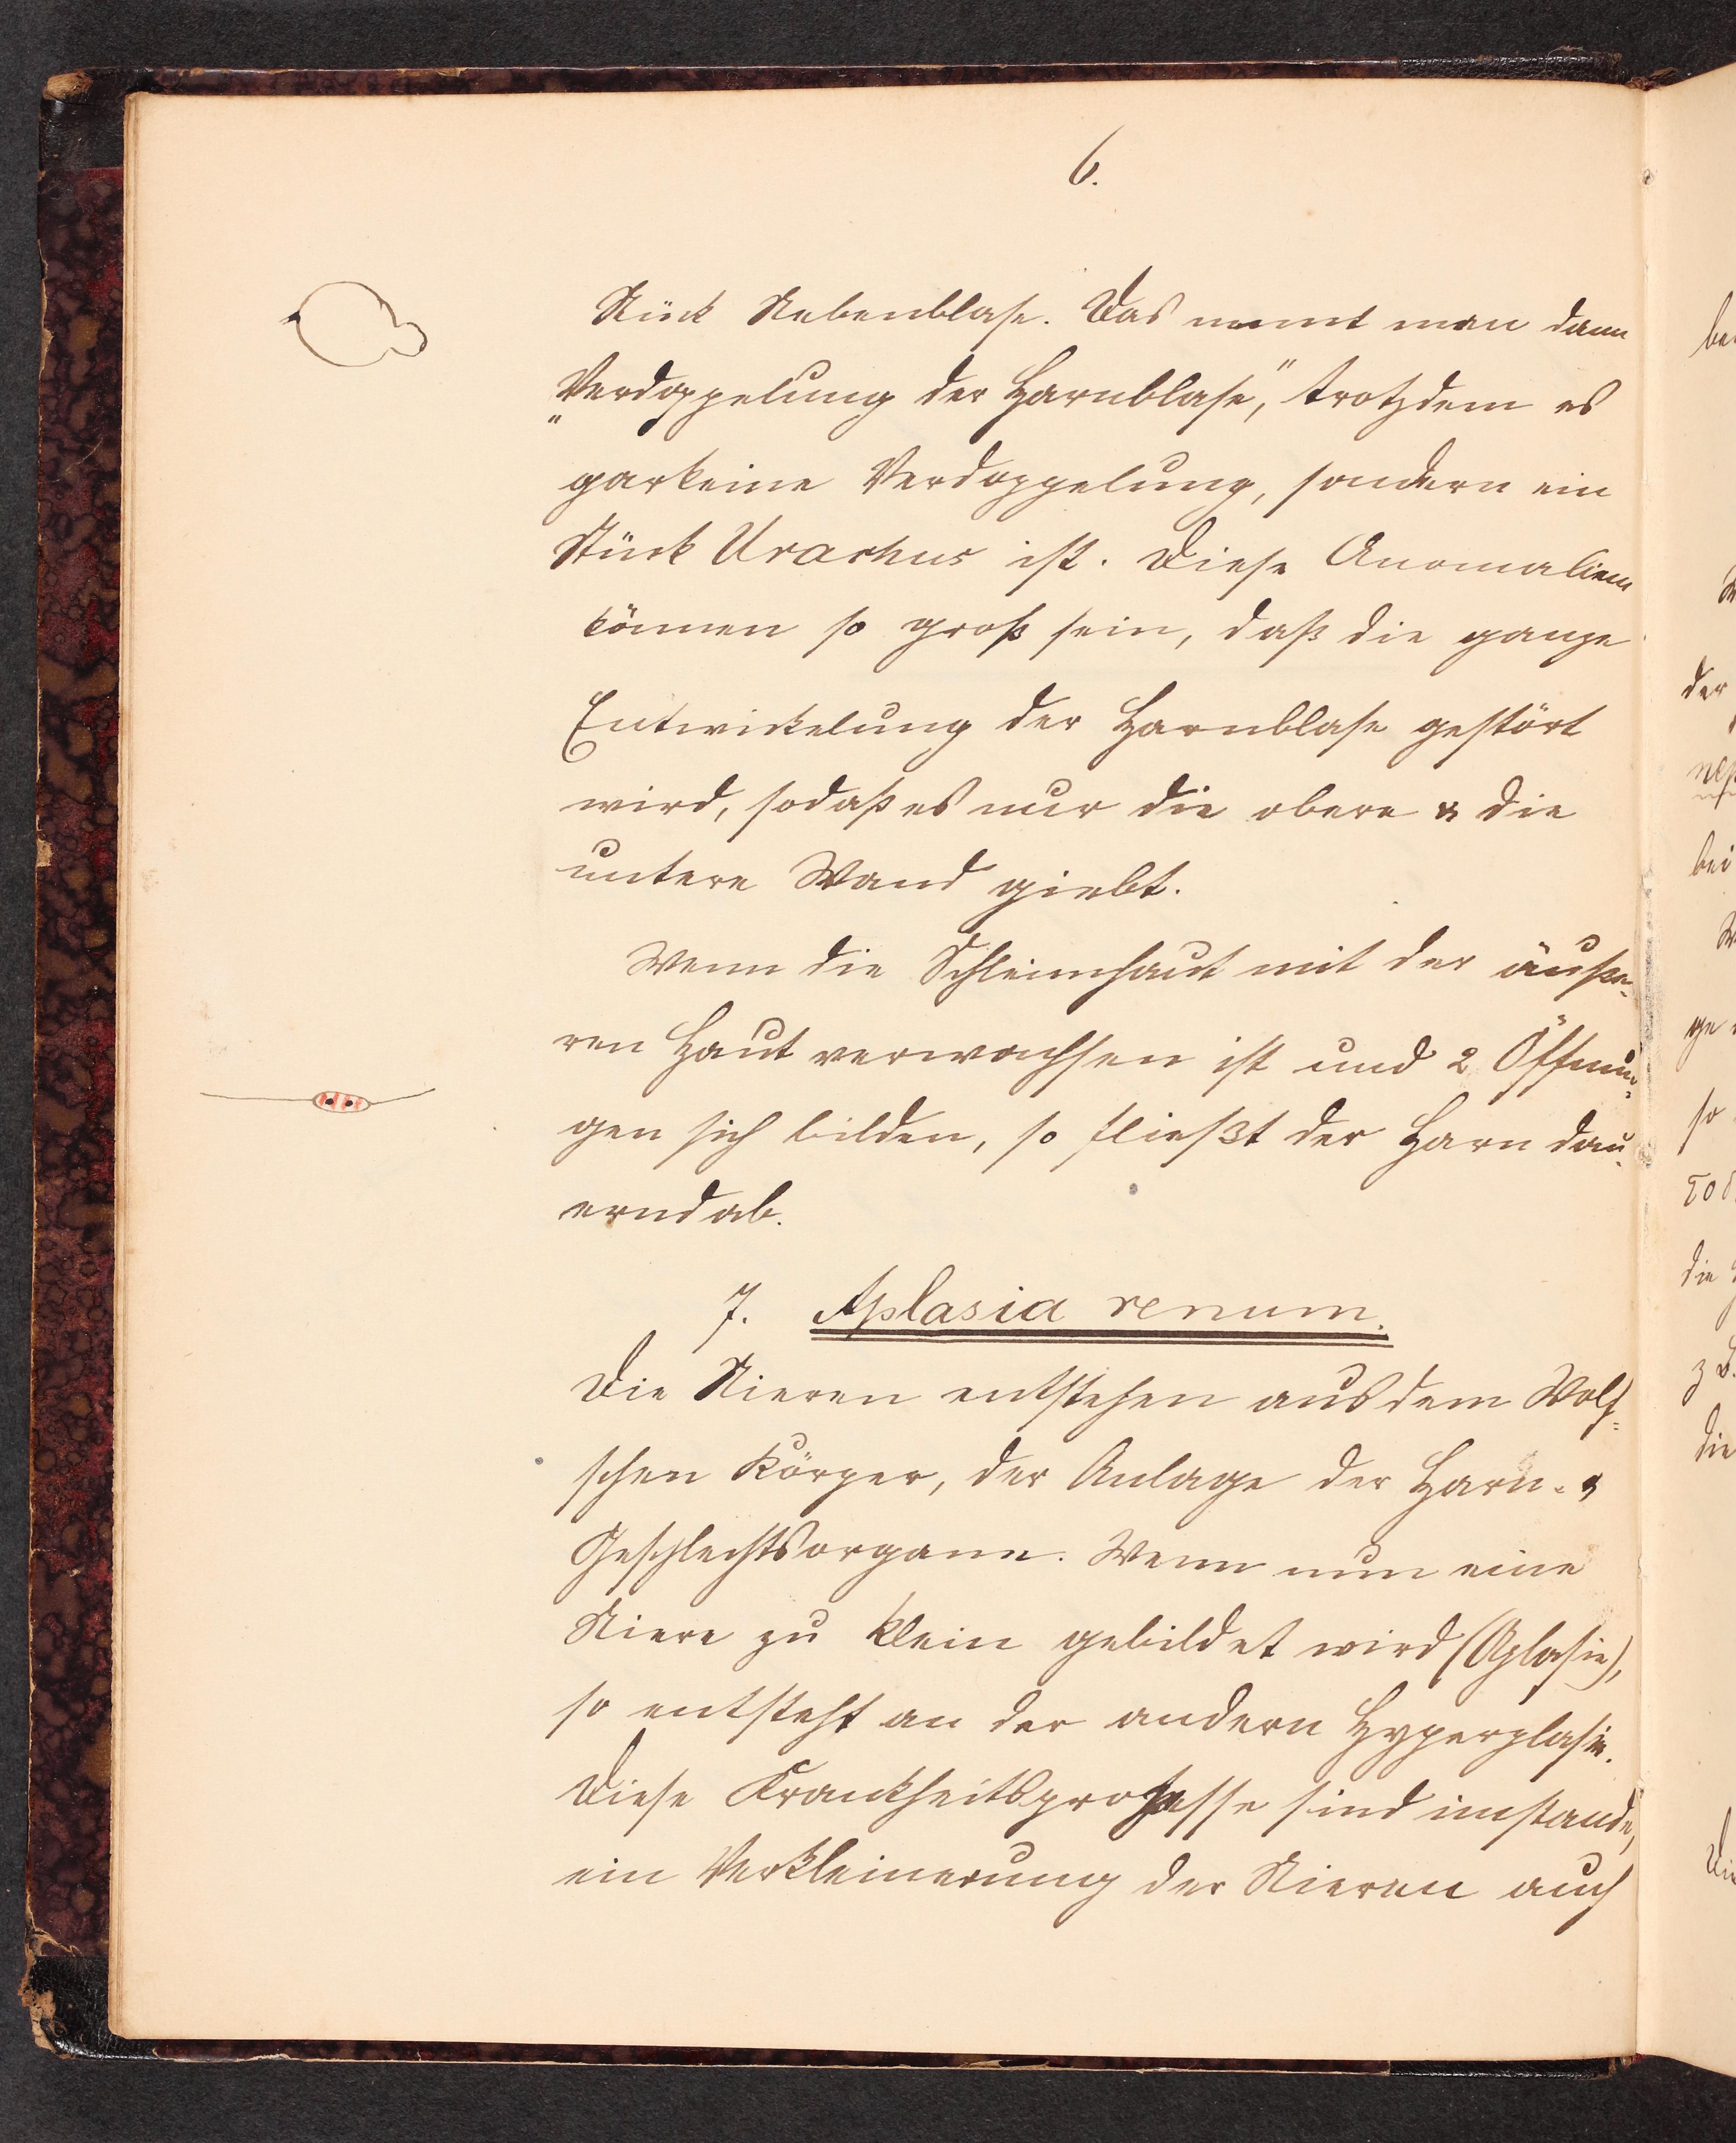 6.
Stück Nebenblase. Das nennt man dann
"Verdoppelung der Harnblase," trotzdem es
garkeine Verdoppelung, sondern ein
Stück Urachus ist. Diese Anomalien
können so groß sein, daß die ganze
Entwickelung der Harnblase gestört
wird, sodaß es nur die obere & die
untere Wand giebt.
Wenn die Schleimhaut mit der äuße-
ren Haut verwachsen ist und 2 Öffnun-
gen sich bilden, so fließt der Harn dau-
ernd ab.
7. Aplasia renum.
Die Nieren entstehen aus dem Wolf-
schen Körper, der Anlage der Harn- &
Geschlechtsorgane. Wenn nun eine
Niere zu klein gebildet wird (Aplasie),
so entsteht an der andern Hyperplasie.
Diese Krankheitsprozesse sind imstande,
ein Verkleinerung der Nieren auch
der
bei
ge
so
die
z B.
die